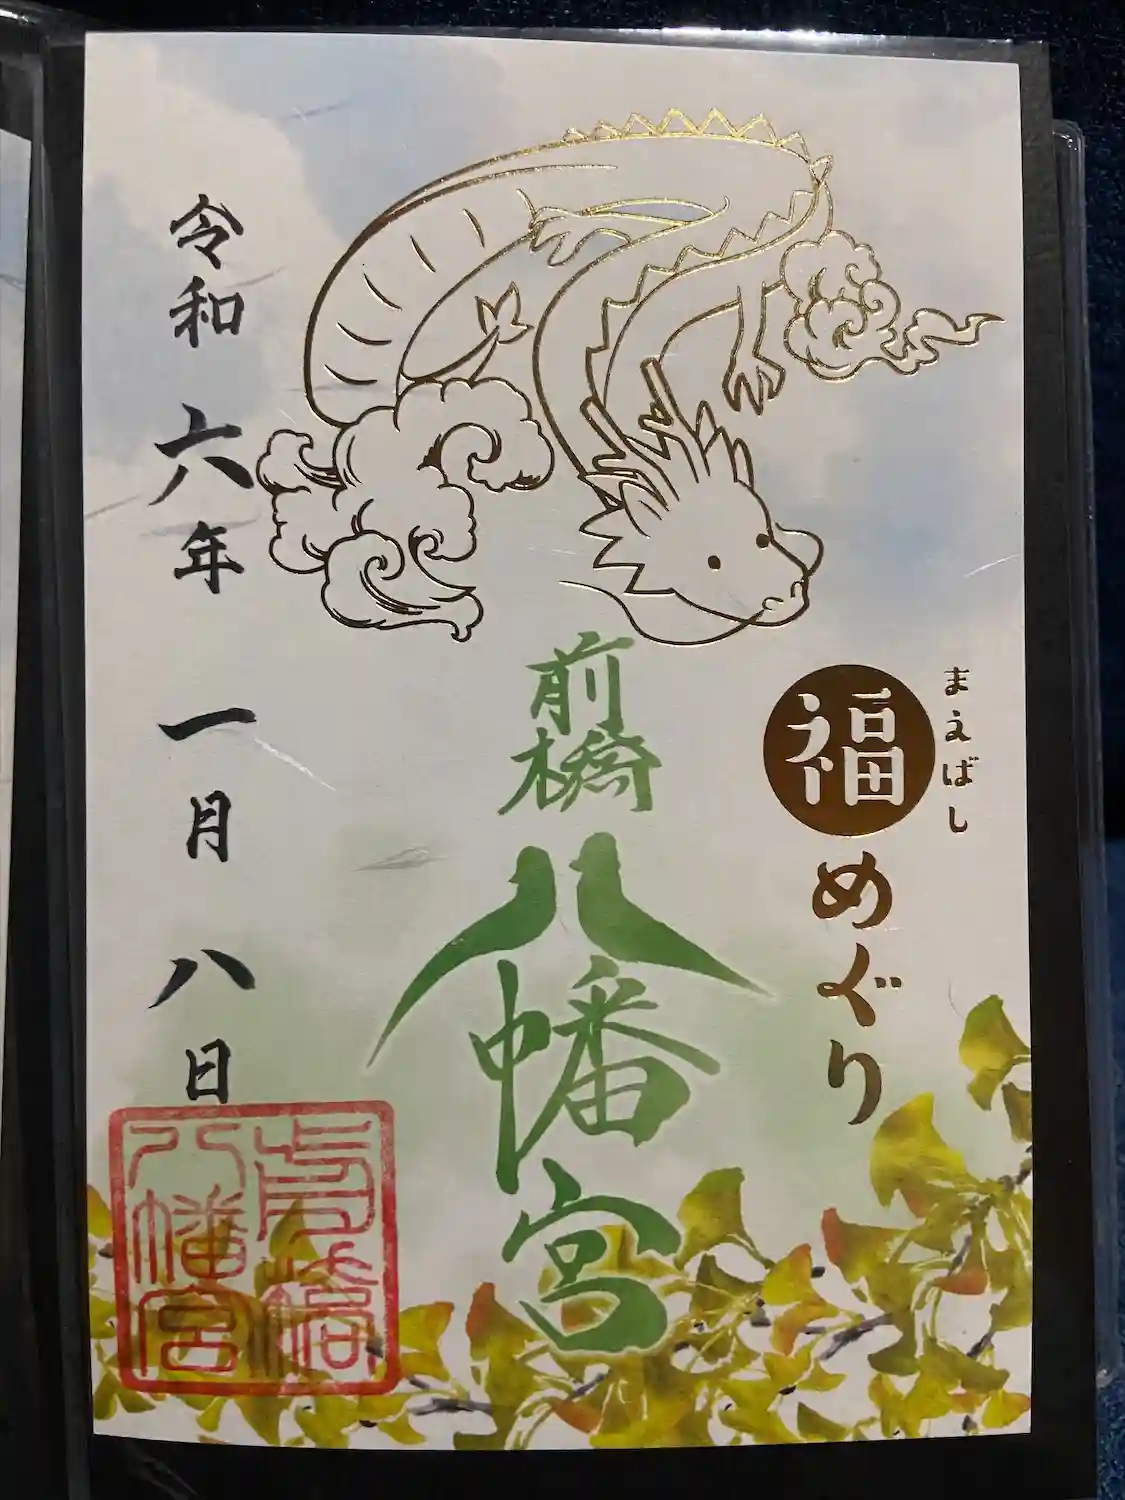 まえばし
福めぐり
前橋
八幡宮
令和六年一月八日
八幡宮